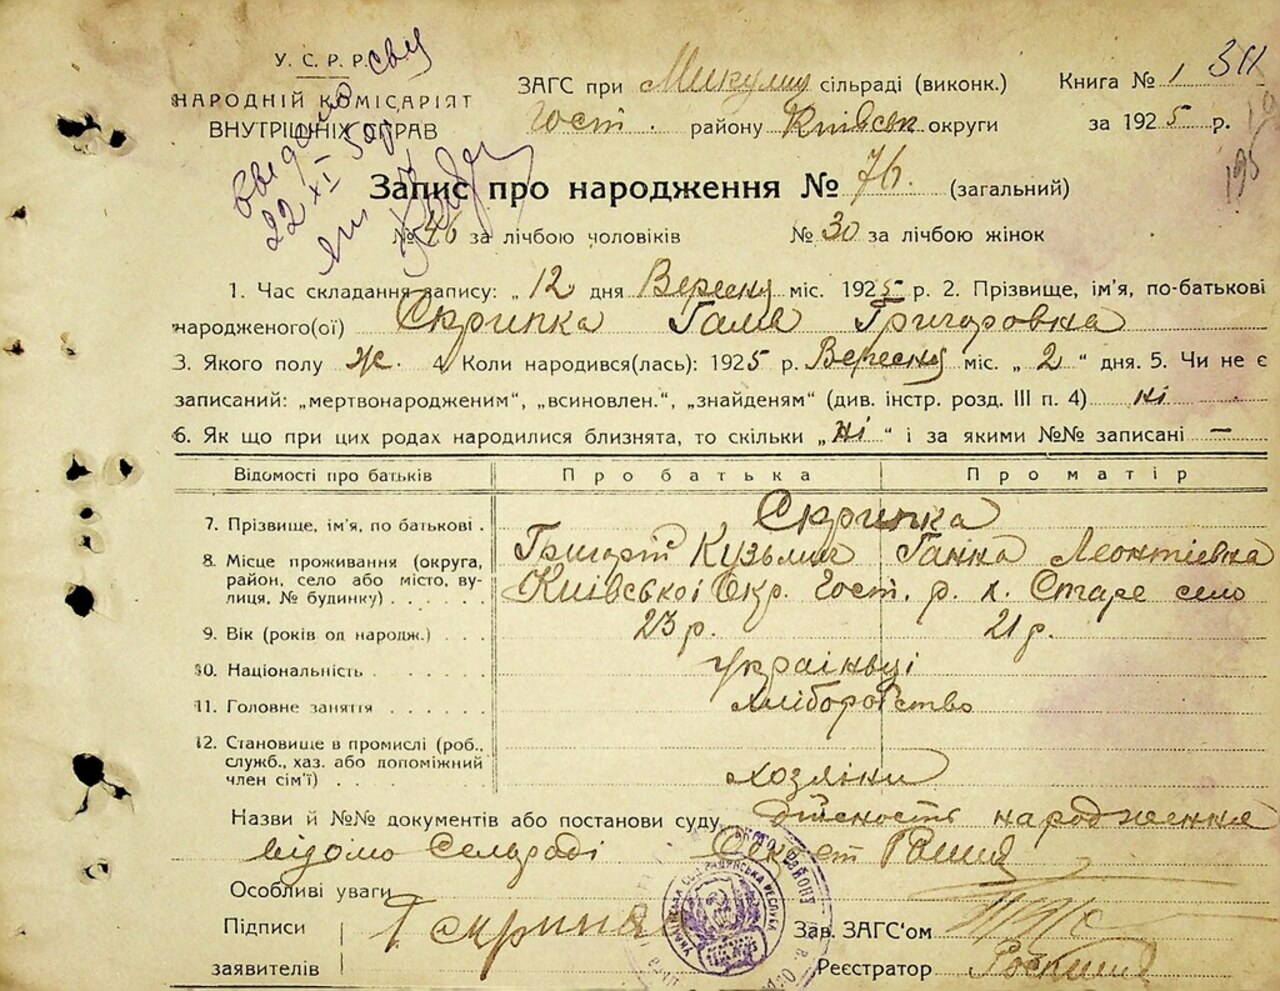 У. С. Р. Р.
НАРОДНІЙ КОМІСАРІЯТ
ВНУТРІШНІХ СПРАВ
ЗАГС при Микулиц сільраді (виконк.) Книга № 1 311
Гост. району Київськ округи за 1925 р.
22 XI
Запис про народження № 76. (загальний)
№ 46 за лічбою чоловіків № 30 за лічбою жінок
1. Час складання запису: „ 12 дня Вересня міс. 1925 р. 2. Прізвище, ім'я, по-батькові
народженого(ої) Скрипка Галя Григоровна
3. Якого полу ж. 4 Коли народився(лась): 1925 р. Вересня міс. „ 2 “ дня. 5. Чи не є
записаний: „мертвонародженим“, „всиновлен.“, „знайденям“ (див. інстр. розд. III п. 4) ні
6. Як що при цих родах народилися близнята, то скільки „ ні “ і за якими №№ записані —
Відомості про батьків Про батька Про матір
7. Прізвище, ім'я, по батькові . Скрипка
Григорій Кузьмич Ганна Леонтіевна
8. Місце проживання (округа, район, село або місто, вулиця, № будинку) Київської Окр. Гост. р. х. Старе село
9. Вік (років од народж.) 23 р. 21 р.
10. Національність українці
11. Головне заняття хліборобство
12. Становище в промислі (роб., служб., хаз. або допоміжний член сім'ї) хозяіни
Назви й №№ документів або постанови суду дійсность народження
відомо Сельраді
Особливі уваги
Підписи Г Скрипка Зав. ЗАГС'ом
заявителів Реєстратор